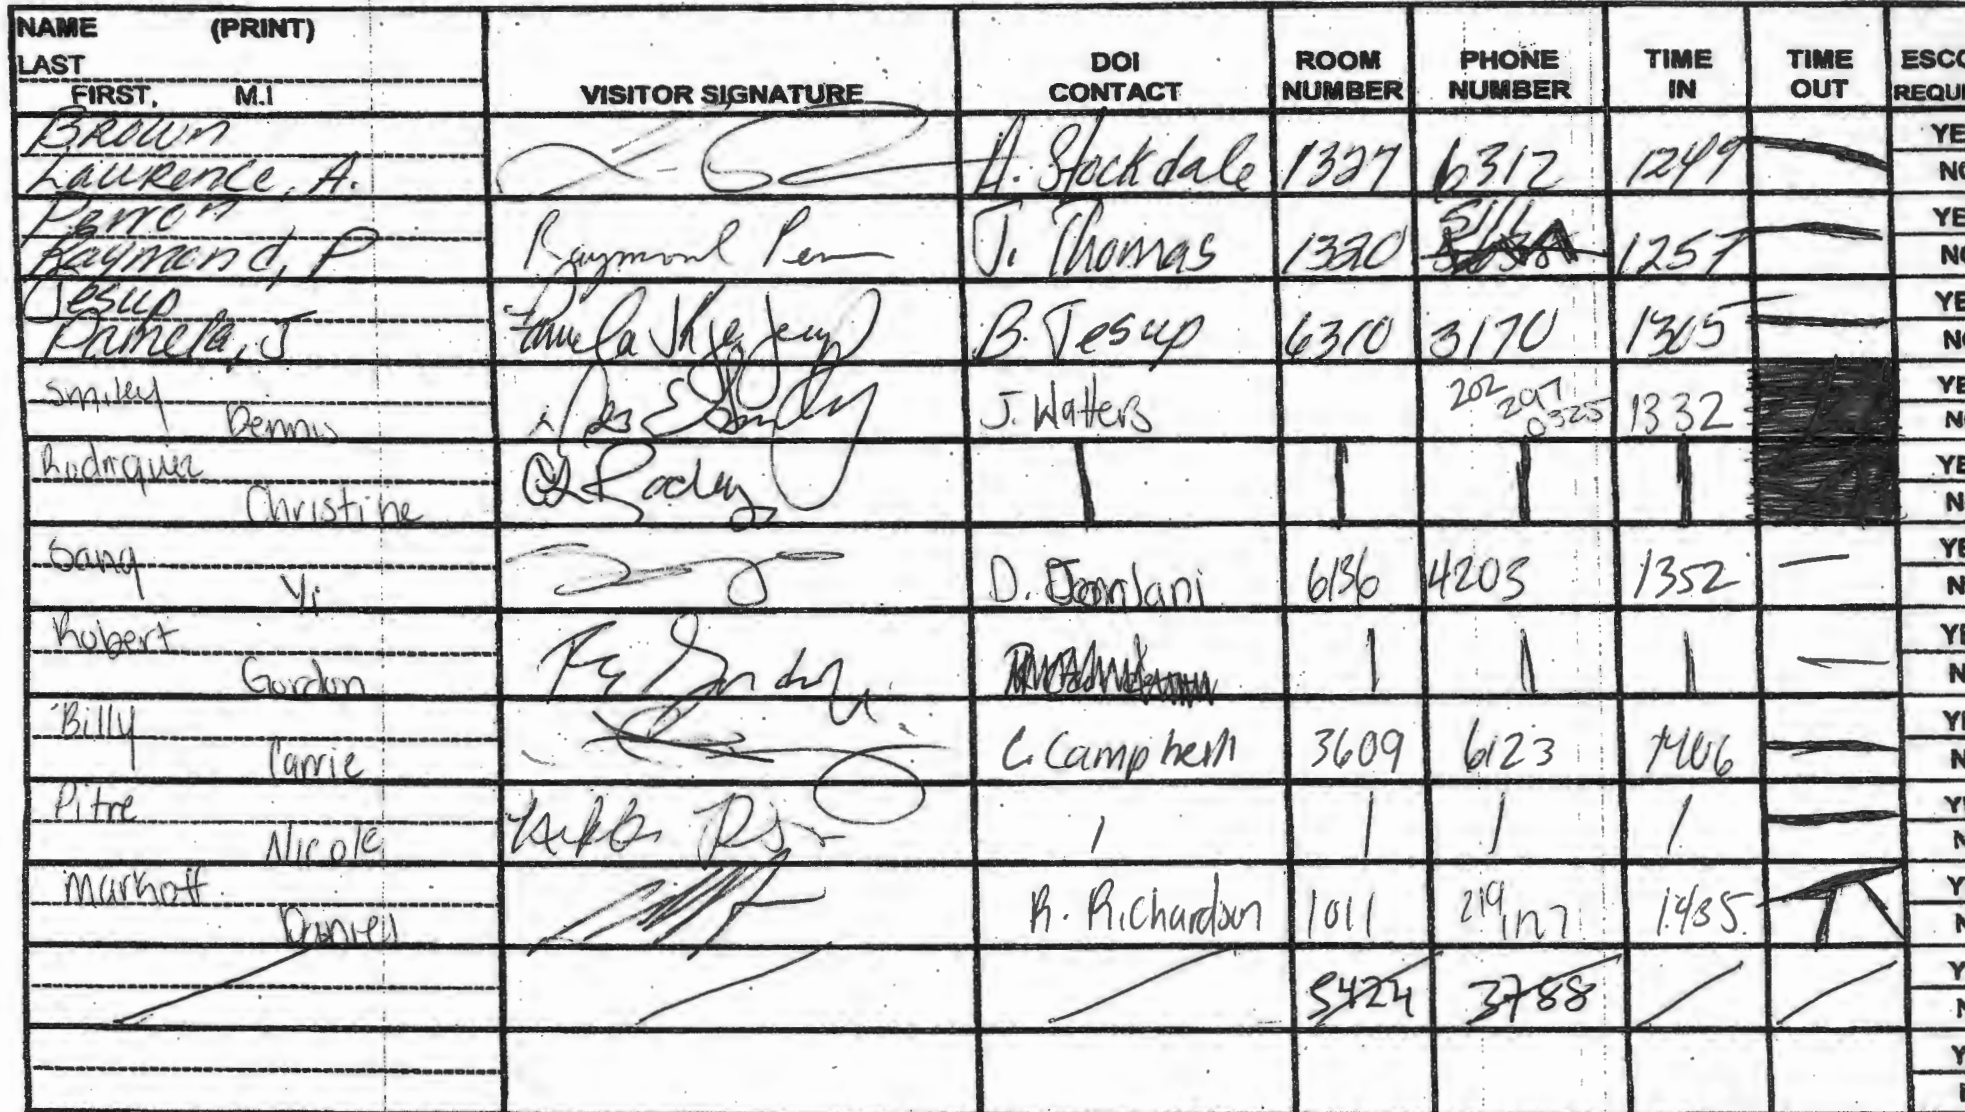 NAME (PRINT)
LAST
FIRST, M.I
VISITOR SIGNATURE
DOI
CONTACT
ROOM
NUMBER
PHONE
NUMBER
TIME
IN
TIME
OUT
ESCO
REQUI
Brown
Laurence, A.
A. Stockdale 1327 6312 1249
YE
NO
Perron
Raymond, P
Raymond
J. Thomas 1320 5111 1257
YE
NO
Jesup
Pamela, J
Pamela
B. Jesup 6310 3170 1305
YE
NO
Smiley
Dennis
J. Watters
202
297
0325
1332
YE
NO
Rodriquez
Christine
YE
N
Sang
Yi
D. 6136 4203 1352
YE
N
Robert
Gordon
YE
N
Billy
Carrie
C. Campbell 3609 6123 1406
YE
N
Pitre
Nicole
YE
N
Markoff
Daniel
R. Richardson 1011 219 1435
Y
N
5424 3788
Y
N
Y